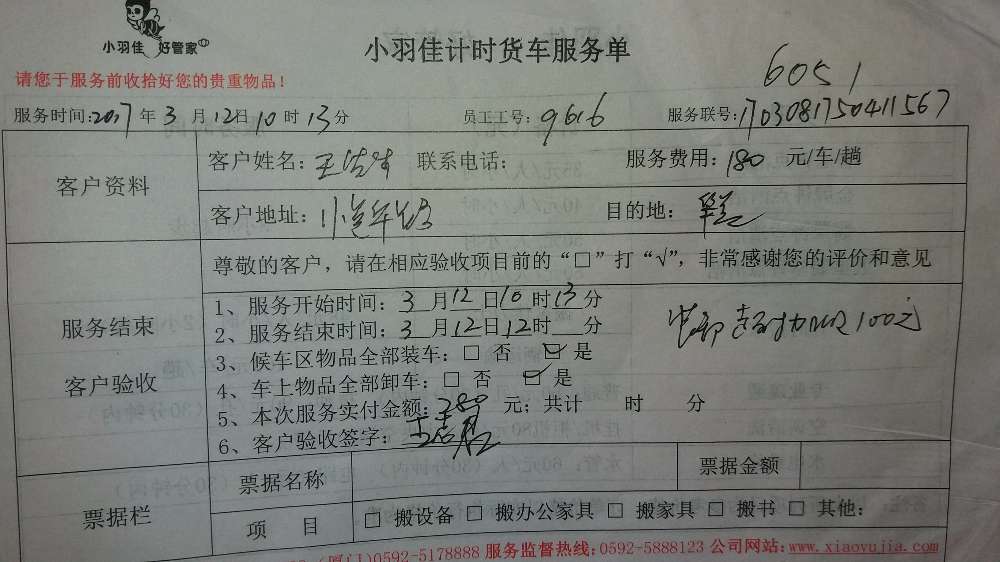 小羽佳 好管家
小羽佳计时货车服务单
请您于服务前收拾好您的贵重物品！
6051
服务时间:2017年3月12日10时13分 员工工号:9616 服务联号:1703081750411567
客户资料
客户姓名:王 联系电话: 服务费用:180 元/车/趟
客户地址: 目的地:
尊敬的客户，请在相应验收项目前的“□”打“√”，非常感谢您的评价和意见
服务结束
客户验收
1、服务开始时间:3月12日10时13分
2、服务结束时间:3月12日12时 分
3、候车区物品全部装车:□ 否 ☑ 是
4、车上物品全部卸车:□ 否 ☑ 是
5、本次服务实付金额:280 元；共计 时 分
6、客户验收签字:王
100元
票据栏
票据名称 票据金额
项 目 □ 搬设备 □ 搬办公家具 □ 搬家具 □ 搬书 □ 其他:
(厦门)0592-5178888 服务监督热线:0592-5888123 公司网站:www.xiaoyujia.com